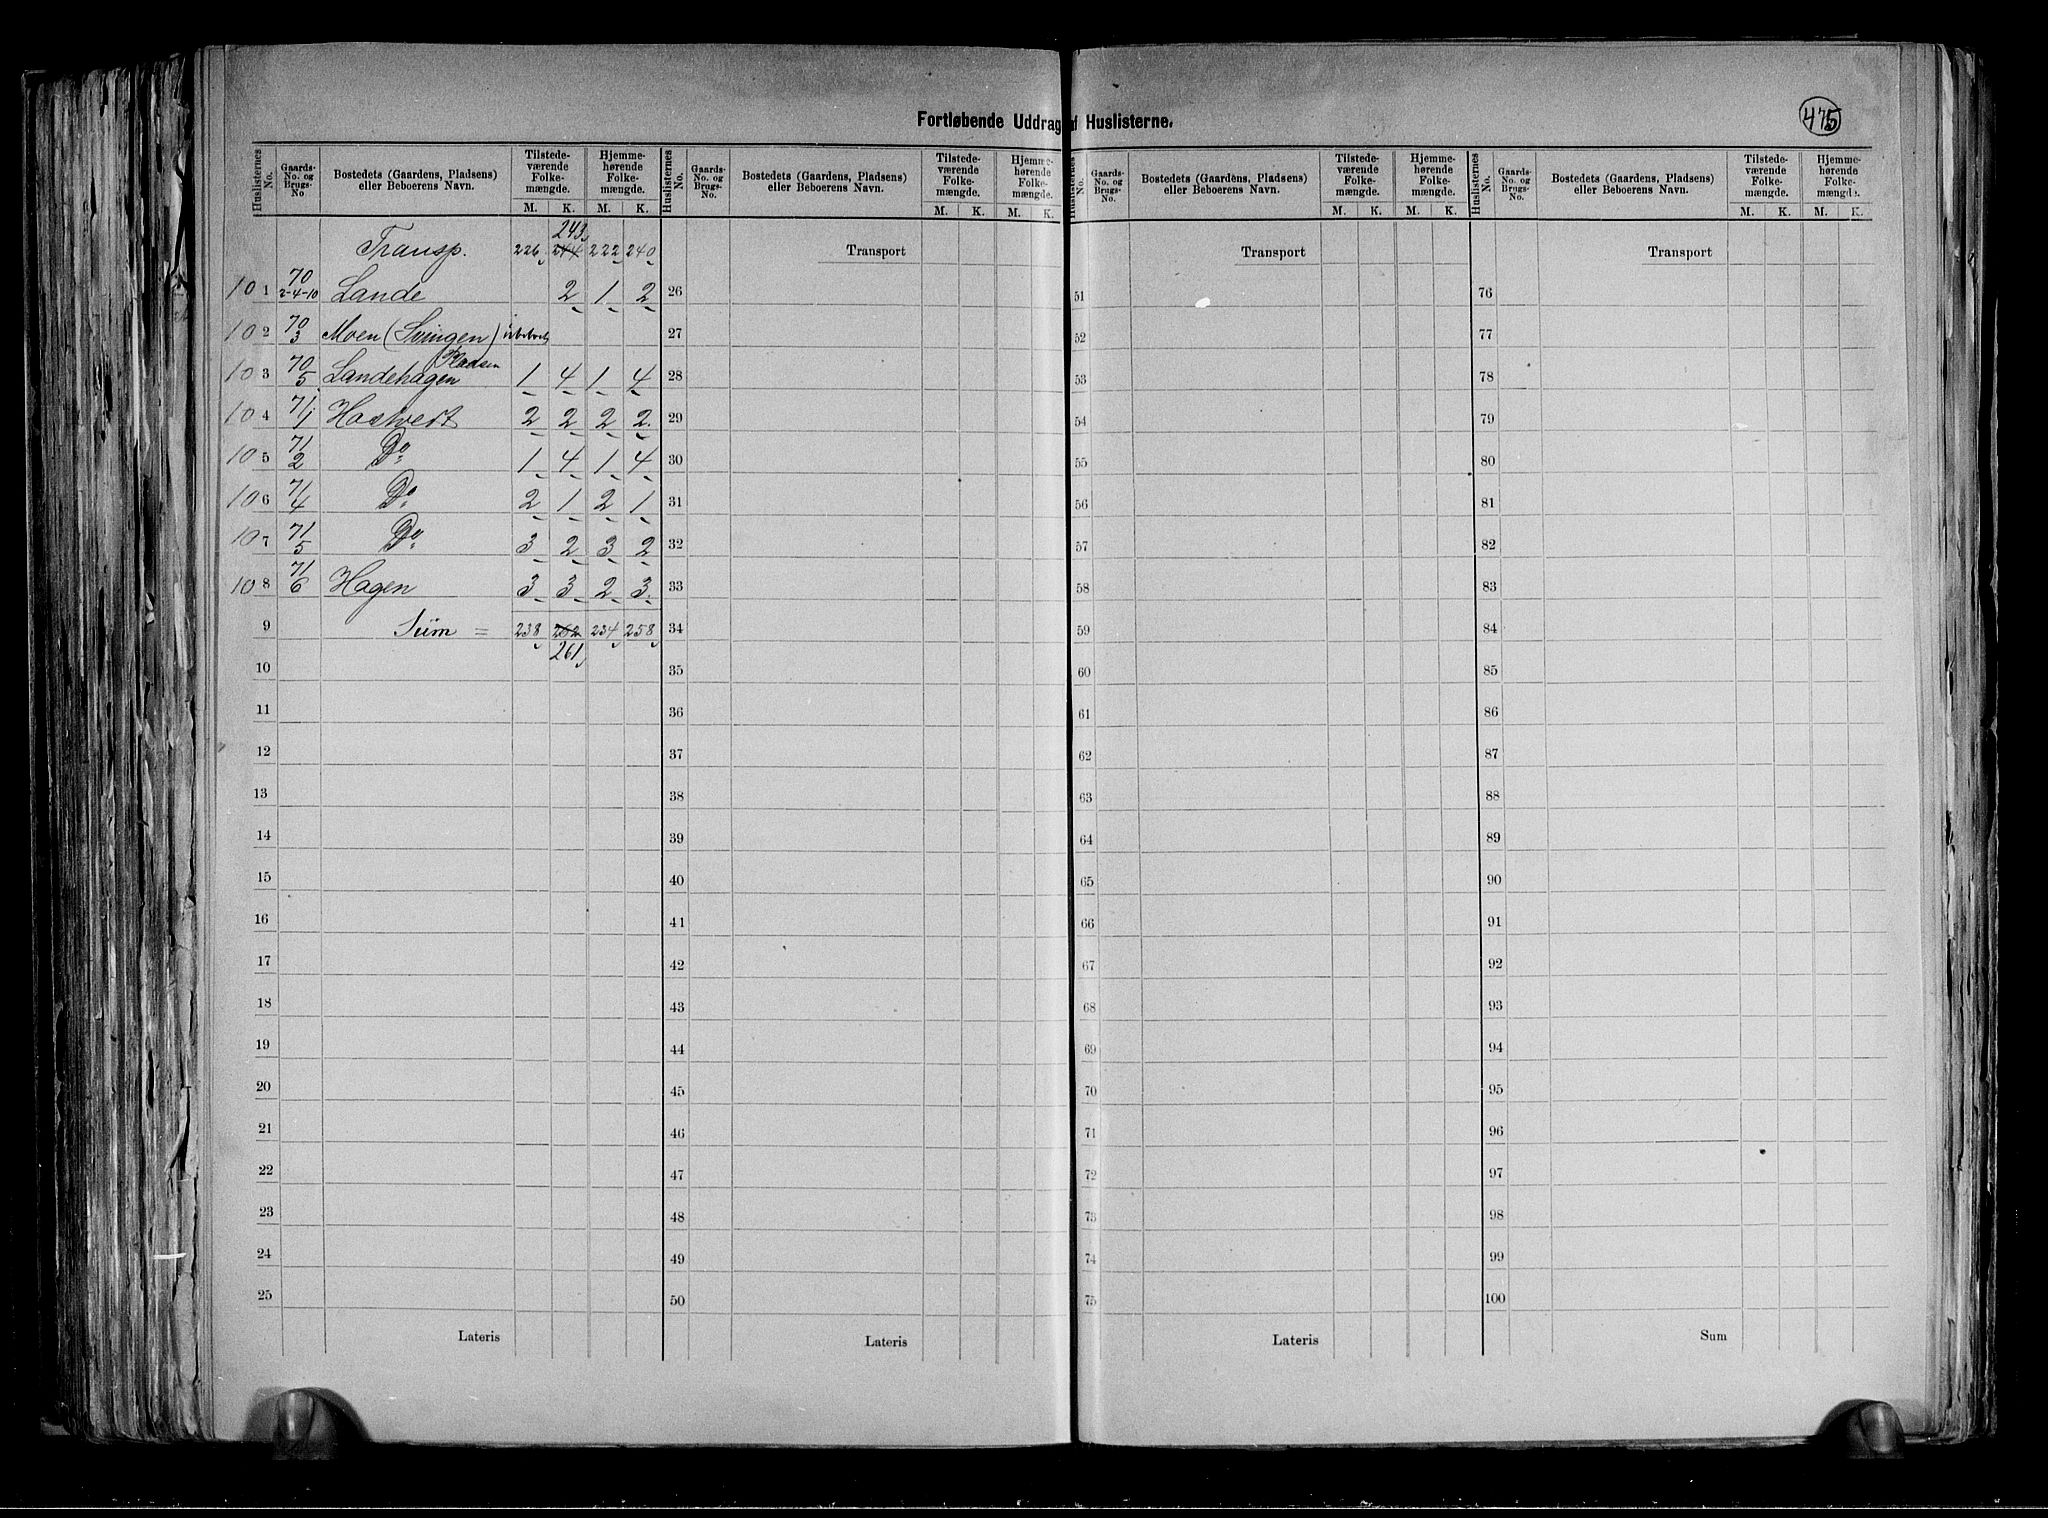 Fortløbende Uddrag af Huslisterne.
475
Huslisternes No. | Gaards-No. og Brugs-No | Bostedets (Gaardens, Pladsens) eller Beboerens Navn. | Tilstedeværende Folkemængde. M. K. | Hjemmehørende Folkemængde. M. K.
Transp. 226 244 243 222 240
101 70/2-4-10 Lande 2 1 2
102 70/3 Moen (Svingen) ubeboet
103 70/5 Landehagen (Pladsen 1 4 1 4
104 71/1 Hostvedt 2 2 2 2
105 71/2 Do 1 4 1 4
106 71/4 Do 2 1 2 1
107 71/5 Do 3 2 3 2
108 71/6 Hagen 3 3 2 3
9 Sum = 238 262 234 258
261
10
11
12
13
14
15
16
17
18
19
20
21
22
23
24
25
Lateris
Huslisternes No. | Gaards-No. og Brugs-No. | Bostedets (Gaardens, Pladsens) eller Beboerens Navn. | Tilstedeværende Folkemængde. M. K. | Hjemmehørende Folkemængde. M. K.
Transport
26
27
28
29
30
31
32
33
34
35
36
37
38
39
40
41
42
43
44
45
46
47
48
49
50
Lateris
Huslisternes No. | Gaards-No. og Brugs-No. | Bostedets (Gaardens, Pladsens) eller Beboerens Navn. | Tilstedeværende Folkemængde. M. K. | Hjemmehørende Folkemængde. M. K.
Transport
51
52
53
54
55
56
57
58
59
60
61
62
63
64
65
66
67
68
69
70
71
72
73
74
75
Lateris
Huslisternes No. | Gaards-No. og Brugs-No. | Bostedets (Gaardens, Pladsens) eller Beboerens Navn. | Tilstedeværende Folkemængde. M. K. | Hjemmehørende Folkemængde. M. K.
Transport
76
77
78
79
80
81
82
83
84
85
86
87
88
89
90
91
92
93
94
95
96
97
98
99
100
Sum